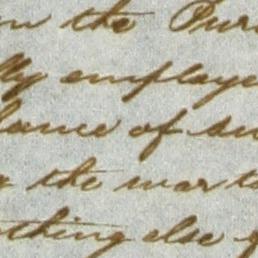 on the Pur
My employe
lance of su
the war to
thing else